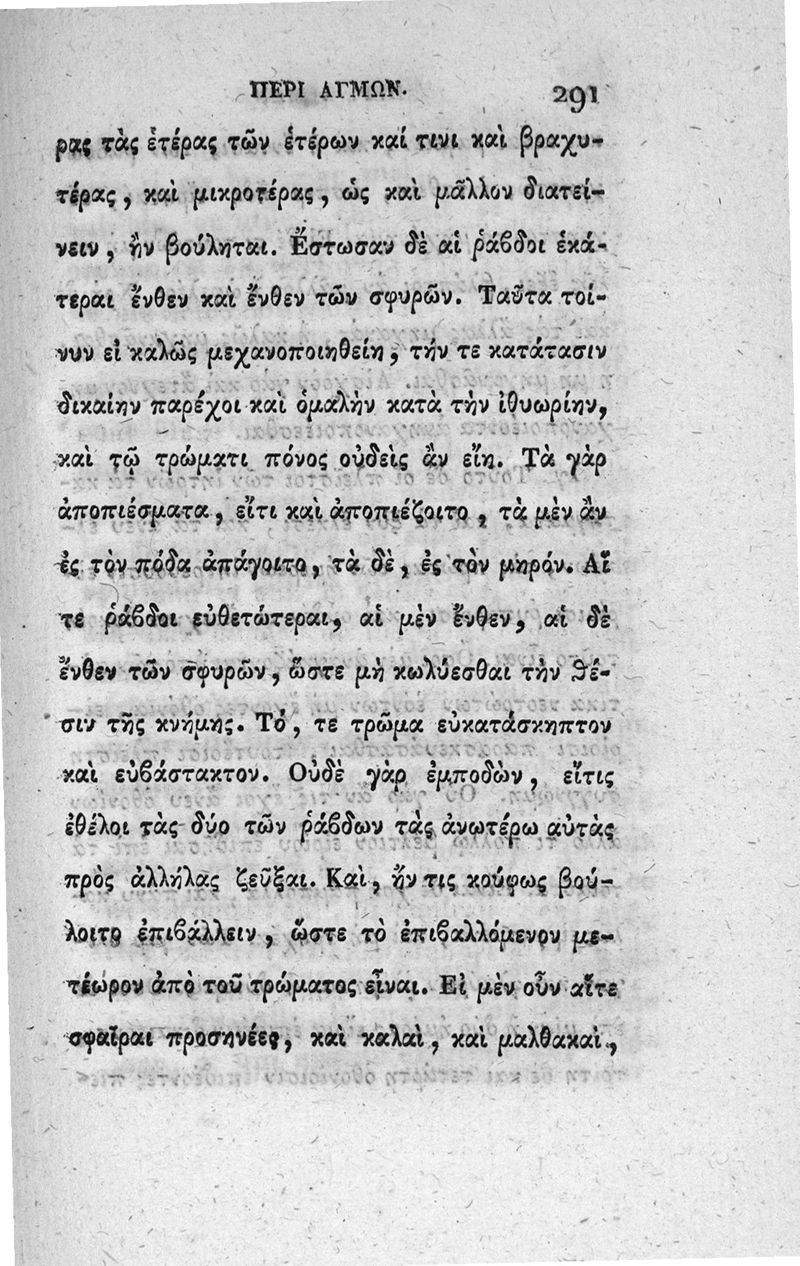 ΠΕΡΙ ΑΓΜΩΝ. 291
ρας τὰς ἑτέρας τῶν ἑτέρων καί τινι καὶ βραχυ-
τέρας, καὶ μικροτέρας, ὡς καὶ μᾶλλον διατεί-
νειν, ἢν βούληται. Ἔστωσαν δὲ αἱ ῥάβδοι ἑκά-
τεραι ἔνθεν καὶ ἔνθεν τῶν σφυρῶν. Ταῦτα τοί-
νυν εἰ καλῶς μεχανοποιηθείη, τήν τε κατάτασιν
δικαίην παρέχοι καὶ ὁμαλὴν κατὰ τὴν ἰθυωρίην,
καὶ τῷ τρώματι πόνος οὐδεὶς ἂν εἴη. Τὰ γὰρ
ἀποπιέσματα, εἴτι καὶ ἀποπιέζοιτο, τὰ μὲν ἂν
ἐς τὸν πόδα ἀπάγοιτο, τὰ δὲ, ἐς τὸν μηρόν. Αἵ
τε ῥάβδοι εὐθετώτεραι, αἱ μὲν ἔνθεν, αἱ δὲ
ἔνθεν τῶν σφυρῶν, ὥστε μὴ κωλύεσθαι τὴν θέ-
σιν τῆς κνήμης. Τό, τε τρῶμα εὐκατάσκηπτον
καὶ εὐβάστακτον. Οὐδὲ γὰρ ἐμποδὼν, εἴτις
ἐθέλοι τὰς δύο τῶν ῥάβδων τὰς ἀνωτέρω αὐτὰς
πρὸς ἀλλήλας ζεῦξαι. Καὶ, ἤν τις κούφως βού-
λοιτο ἐπιβάλλειν, ὥστε τὸ ἐπιβαλλόμενον με-
τέωρον ἀπὸ τοῦ τρώματος εἶναι. Εἰ μὲν οὖν αἵτε
σφαῖραι προσηνέες, καὶ καλαὶ, καὶ μαλθακαὶ,